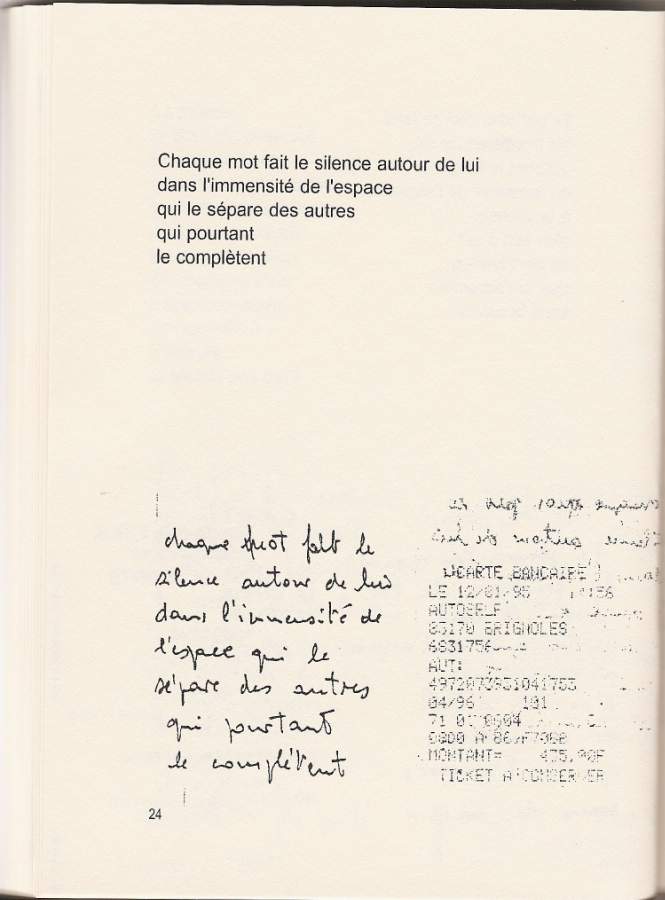 Chaque mot fait le silence autour de lui
dans l'immensité de l'espace
qui le sépare des autres
qui pourtant
le complètent
chaque mot fait le
silence autour de lui
dans l'immensité de
l'espace qui le
sépare des autres
qui pourtant
le complètent
CARTE BANCAIRE
LE 12/01/95
AUTOSELF
83170 BRIGNOLES
6831756
AUT:
04/96 101
MONTANT= 435,90F
TICKET A CONSERVER
24